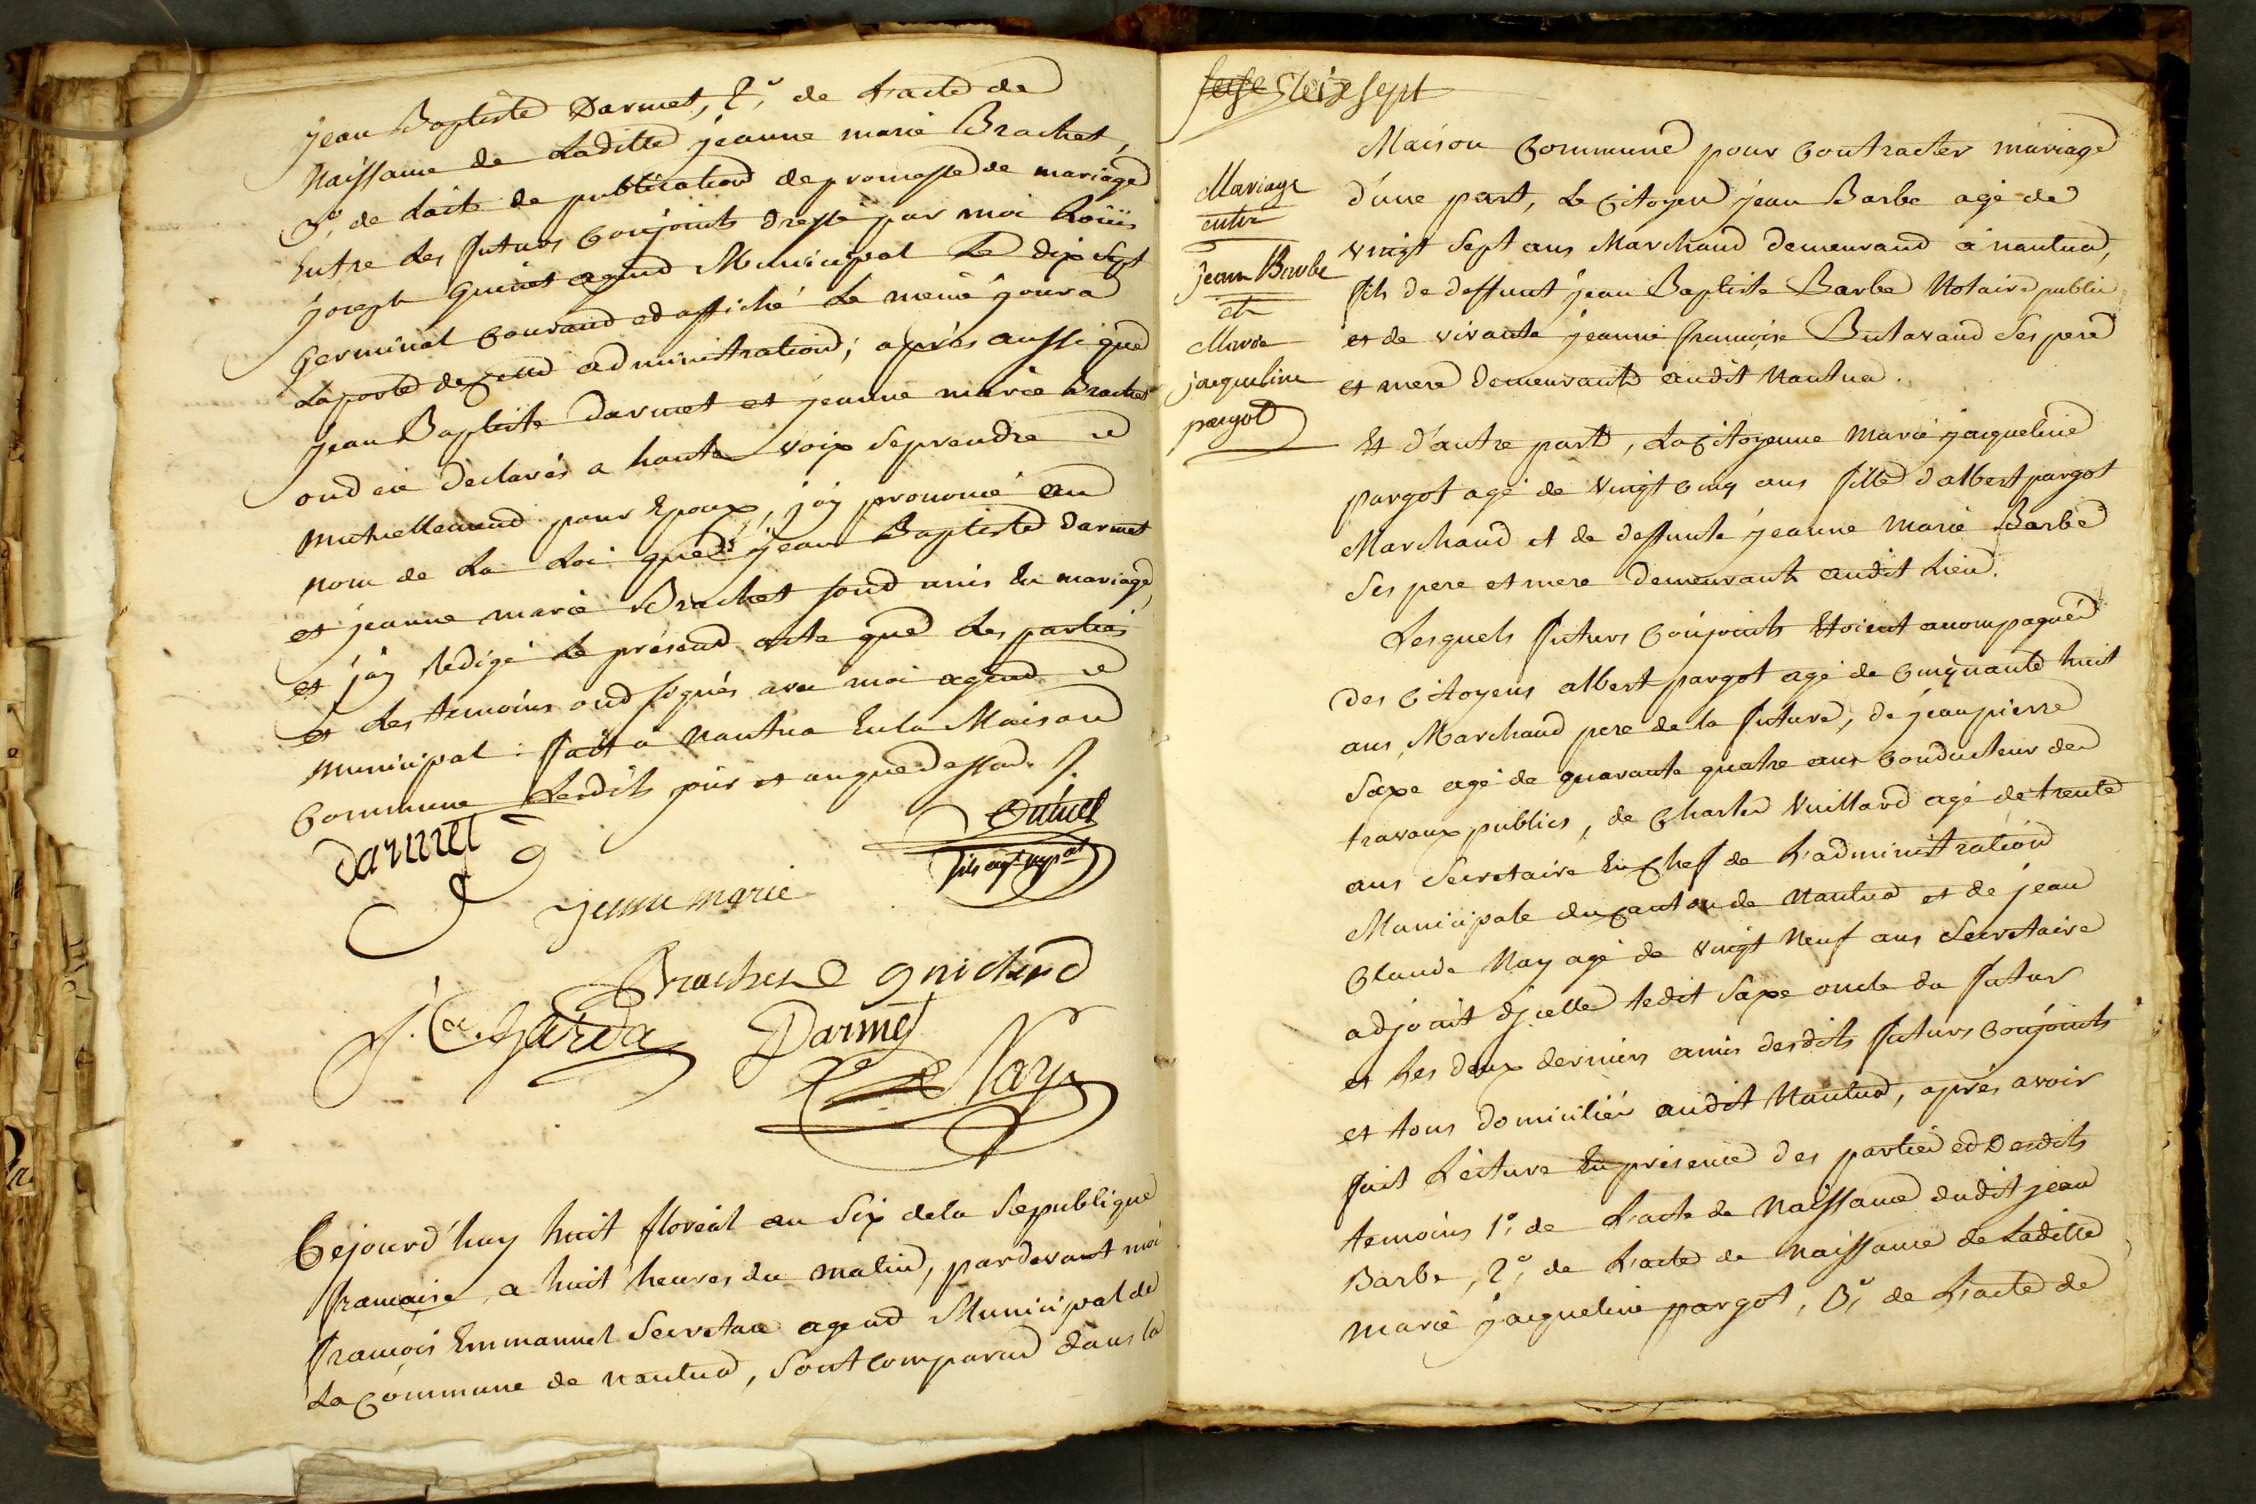 jean Baptiste Darmet, 2°, de L'acte de
Naissance de Laditte jeanne marie Brachet,
3°, de Lacte de publication de promesse de mariage
Entre Les futurs Conjoints Dressé par moi Loüis
joseph Guinet agend Municipal Le dix Sept
Germinal Courand et affiché Le meme jour a
Laporte de Cette administration; après aussi que
jean Baptiste Darmet et jeanne marie Brachet
ond eü declarés a haute voix Seprendre
mutuellemend pour Epoux, j'ay prononcé au
nom de La Loi que jean Baptiste Darmet
et jeanne marie Brachet sond unis En mariage,
et j'ay Redigé Le présend acte que Les parties
et Les temoins ond signés avec moi agend
municipal: fait a Nantua En la Maison
Commune Lesdits jour et an que Dessus.
Darmet
Guinet
fils agt mpal
jeanne marie
Brachet guichard
J. C. Garda Darmet
Nay
Cejourd'huy huit floréal an Six dela Republique
francaise, a huit heures du matin, pardevant moi
françois Emmanuel Secretan agend Municipal de
La Commune de nantua, Sont comparus dans la
sese Dix sept
Mariage
entre
jean Barbe
et
Marie
jacqueline
pargot
Maison Commune pour Contracter mariage
d'une part, Le Citoyen jean Barbe agé de
vingt Sept ans Marchand demeurand a nantua,
fils de deffunt jean Baptiste Barbe Notaire public
et de vivante jeanne françoise Butavand Ses pere
et mere demeurants audit Nantua.
Et d'autre part, La Citoyenne Marie jacqueline
pargot agé de vingt Cinq ans fille d'albert pargot
Marchand et de deffunte jeanne Marie Barbe
Ses pere et mere demeurant audit Lieu.
Lesquels futurs Conjoints Etoient acompagnés
des Citoyens albert pargot agé de Cinquante huit
ans, Marchand pere de la future, de jean pierre
Saxe agé de quarante quatre ans Conducteur de
travaux publics, de Charles Vuillard agé de trente
ans Secretaire En Chef de L'administration
Municipale du Canton de Nantua et de jean
Claude Nay agé de vingt Neuf ans Secretaire
adjoint d'jcelle ledit Saxe oncle du futur
et Les deux derniers amis desdits futurs Conjoints
et tous domiciliés audit Nantua, après avoir
fait Lecture En présence des parties et Desdits
temoins 1°, de L'acte de Naissance dudit jean
Barbe, 2°, de L'acte de Naissance de Laditte
Marie jacqueline pargot, 3°, de L'acte de